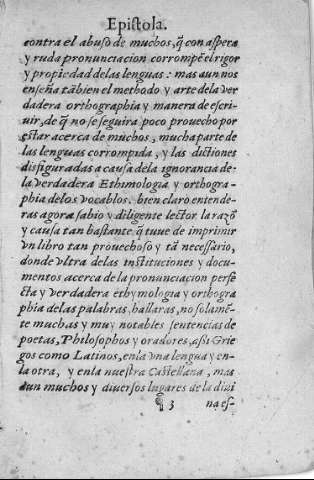 Epistola.
contra el abuso de muchos, q̃ con aspera
y ruda pronunciacion corrompẽ el rigor
y propiedad de las lenguas: mas aun nos
enseña tãbien el methodo y arte de la ver
dadera orthographia y manera de escri-
uir, de q̃ no se seguira poco prouecho por
estar acerca de muchos, mucha parte de
las lenguas corrompida, y las dictiones
disfiguradas a causa dela ignorancia de-
la verdadera Ethimologia y orthogra-
phia delos vocablos. bien claro entende-
ras agora sabio y diligente lector la razõ
y causa tan bastante q̃ tuue de imprimir
vn libro tan prouechoso y tã necessario,
donde vltra delas instituciones y docu-
mentos acerca de la pronunciacion perfe
cta y verdadera ethymologia y orthogra
phia de las palabras, hallaras, no solamẽ-
te muchas y muy notables sentencias de
poetas, Philosophos y oradores, assi Grie
gos como Latinos, enla vna lengua y en-
la otra, y enla nuestra Castellana, mas
aun muchos y diuersos lugares de la diui
¶ 3 na es-